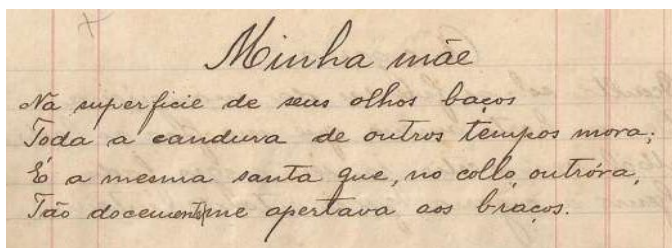 Minha mãe
Na superficie de seus olhos baços
Toda a candura de outros tempos mora;
É a mesma santa que, no collo, outróra,
Tão docemente me apertava aos braços.